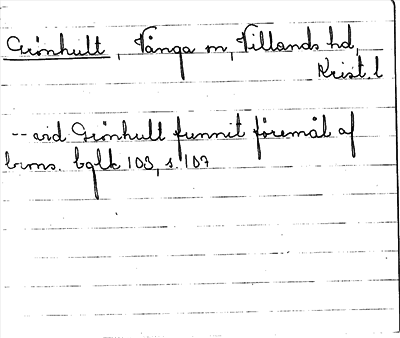 Grönhult, Vånga sn, Villands hd,
Krist. l
-- vid Grönhult funnit föremål af
brons. bglk 103, s. 107